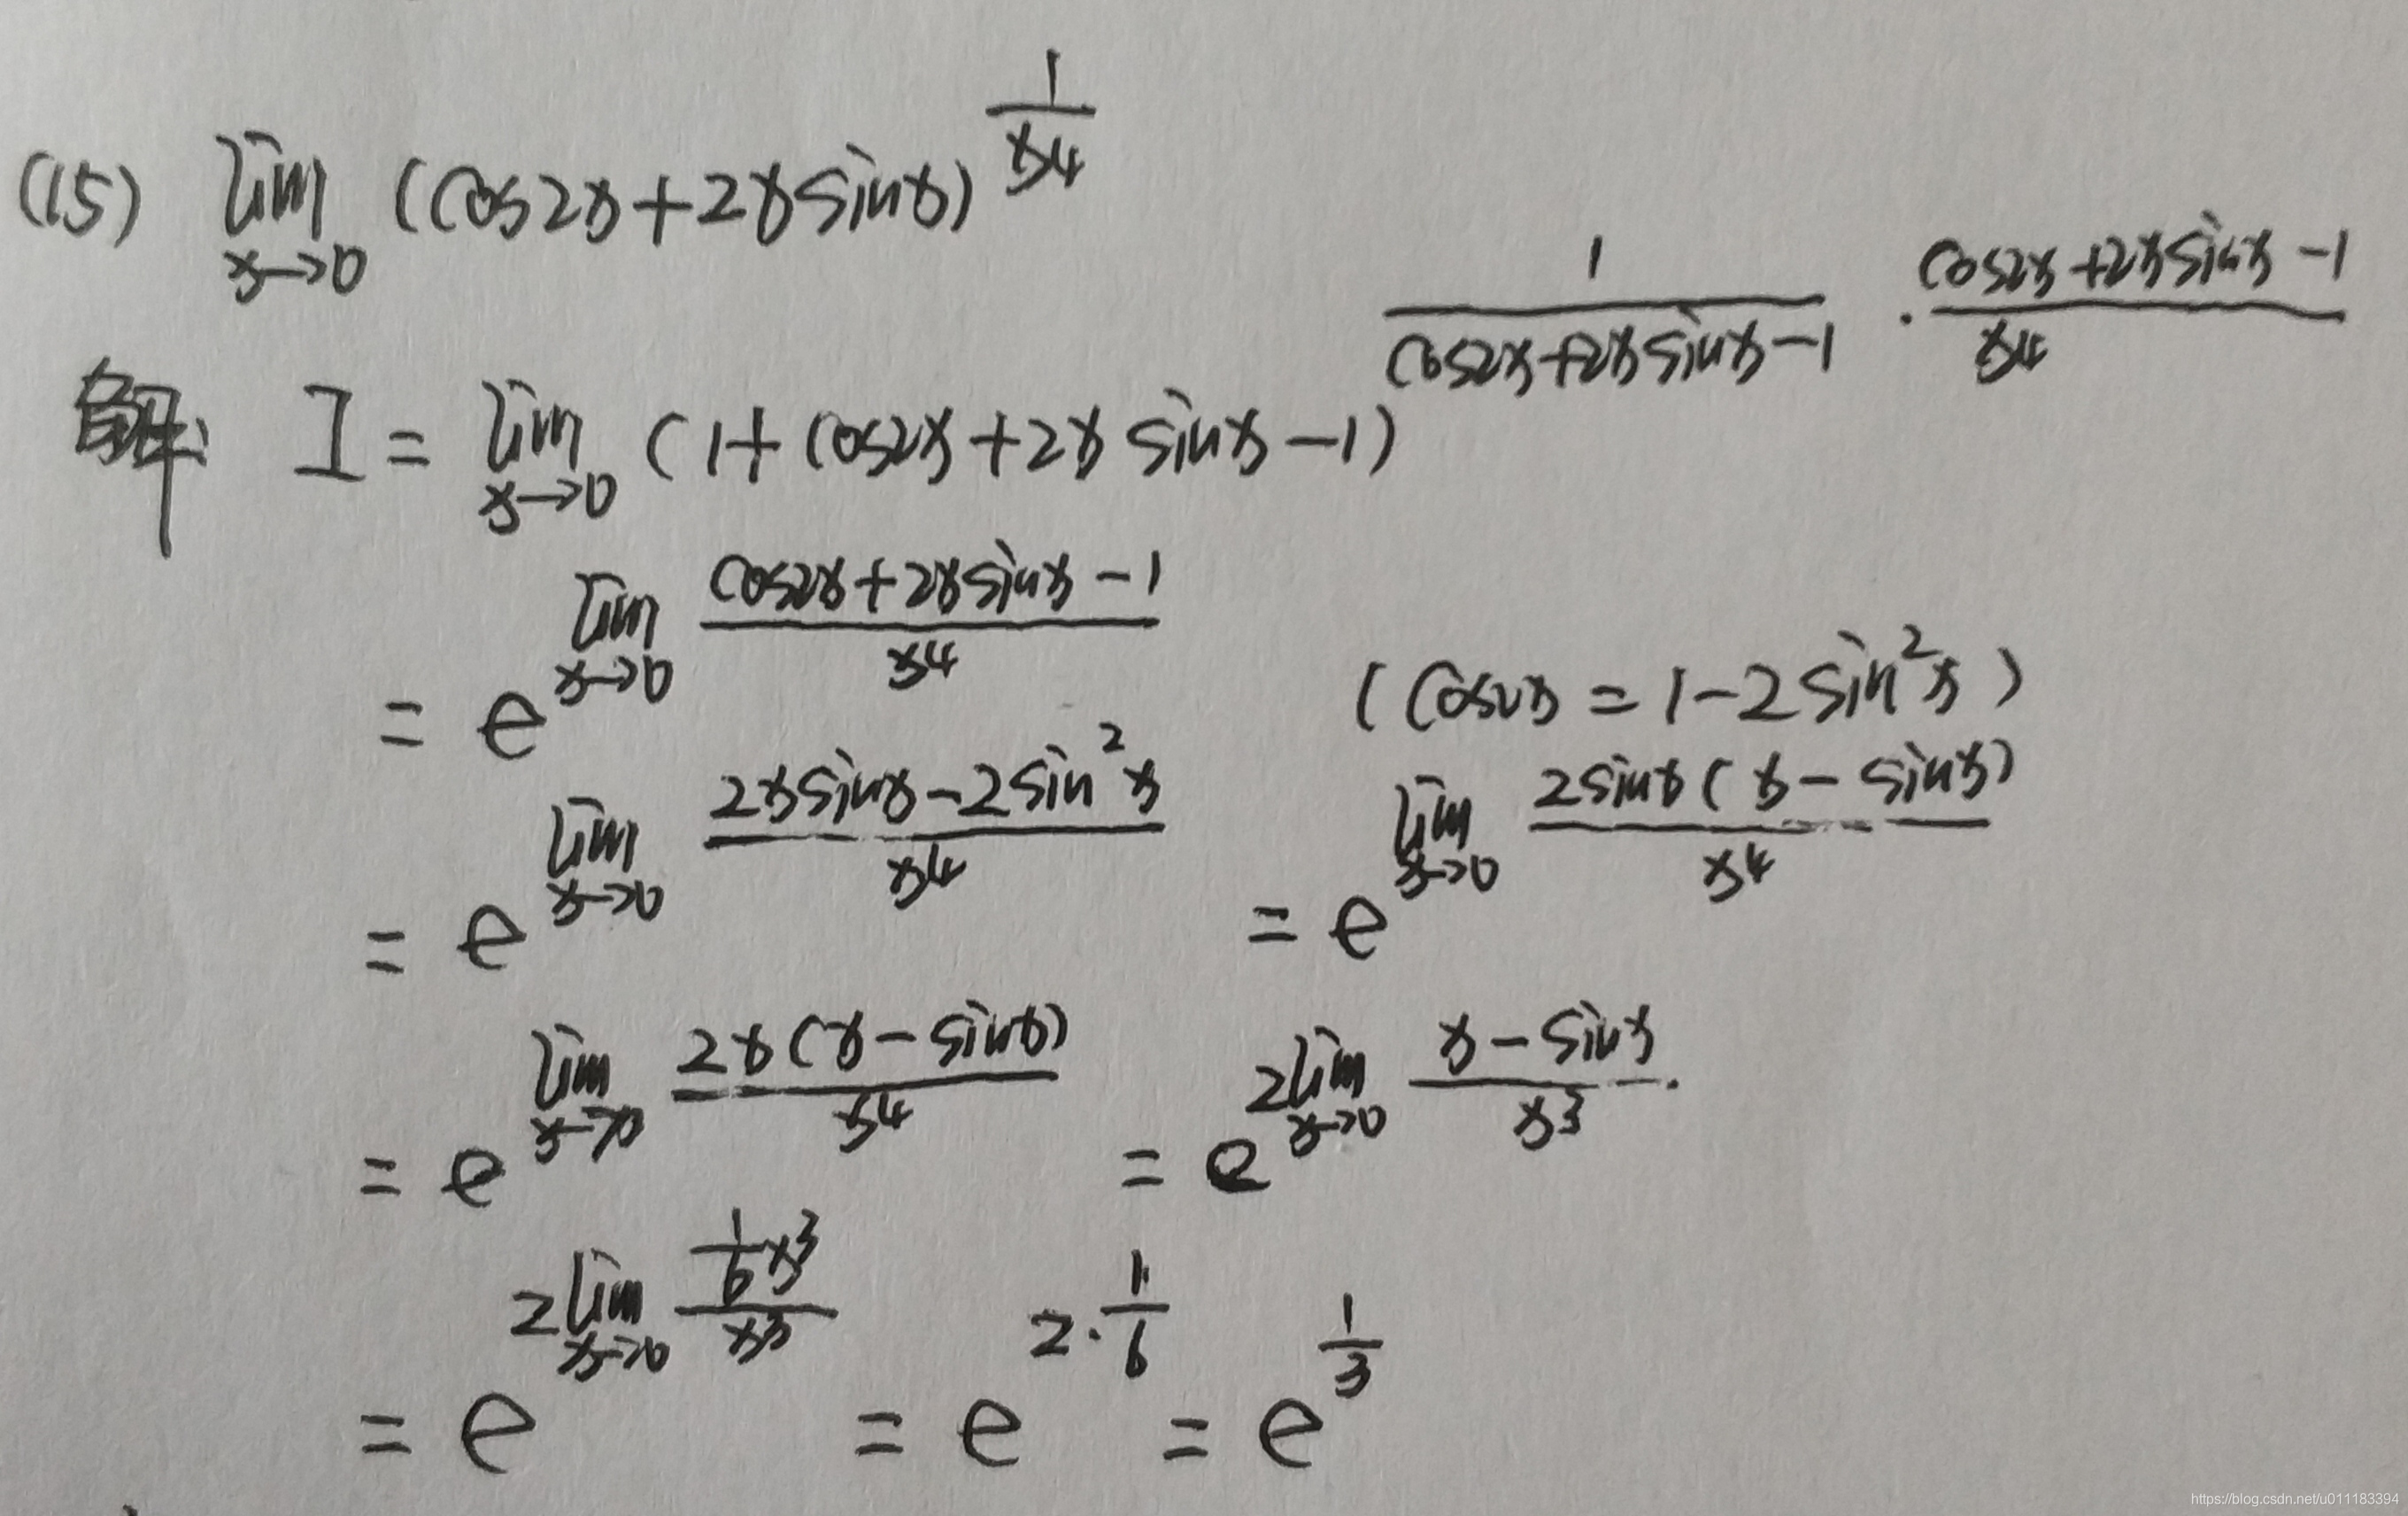 (15) lim_{x→0} (cos2x+2xsinx)^{1/x^4}
解: I = lim_{x→0} (1+cos2x+2xsinx-1)^{1/(cos2x+2xsinx-1) · (cos2x+2xsinx-1)/x^4}
= e^{lim_{x→0} (cos2x+2xsinx-1)/x^4} (cos2x = 1-2sin^2x)
= e^{lim_{x→0} (2xsinx-2sin^2x)/x^4} = e^{lim_{x→0} 2sinx(x-sinx)/x^4}
= e^{lim_{x→0} 2x(x-sinx)/x^4} = e^{2lim_{x→0} (x-sinx)/x^3}
= e^{2lim_{x→0} (1/6 x^3)/x^3} = e^{2·1/6} = e^{1/3}
https://blog.csdn.net/u011183394